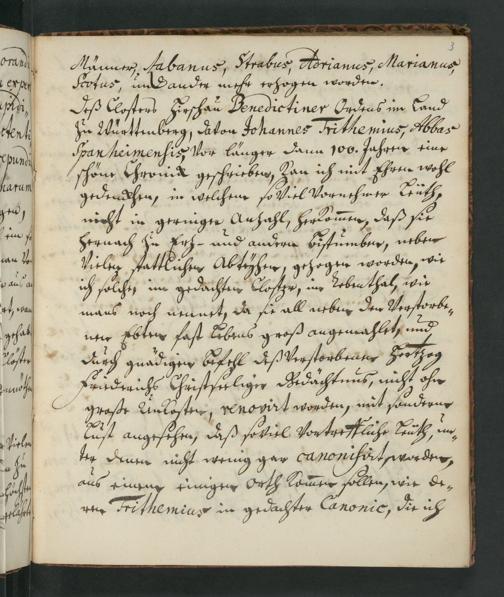 3
Männer, Rabanus, Strabus, Adrianus, Marianus,
Scotus, und andere mehr erzogen worden.
Deß Closters Hirschau Benedictiner Ordens im Land
zu Württemberg, davon Johannes Trithemius, Abbas
Spanheimensis, vor länger dann 100. Jahren eine
schöne Chronick geschrieben, kan ich mit Ehren wohl
gedenckhen, in welchem soviel Vornehmer Leuth,
nicht in geringer Anzahl, herkommen, daß sie
hernach zu Ertz- und andern Bistumben, neben
Vielen stattlichen Abteyhen, gezogen worden, wie
ich solches im gedachten Closter, im Rebenthal, wie
mans noch nennet, da sie all neben den Verstorbe-
nen Ebten fast lebens groß angemahlet, und
durch gnädigen befehl deß Verstorbenen Hertzog
Friederichs Christseeliger Gedächtnus, nicht ohne
große Unkosten, renovirt worden, mit sonderm
lust angesehen, daß soviel Vortreffliche Leuth, un-
ter denen nicht wenig gar canonisirt worden,
aus einem einigen Orth kommen sollen, wie de-
ren Trithemius in gedachter Canonic, die ich